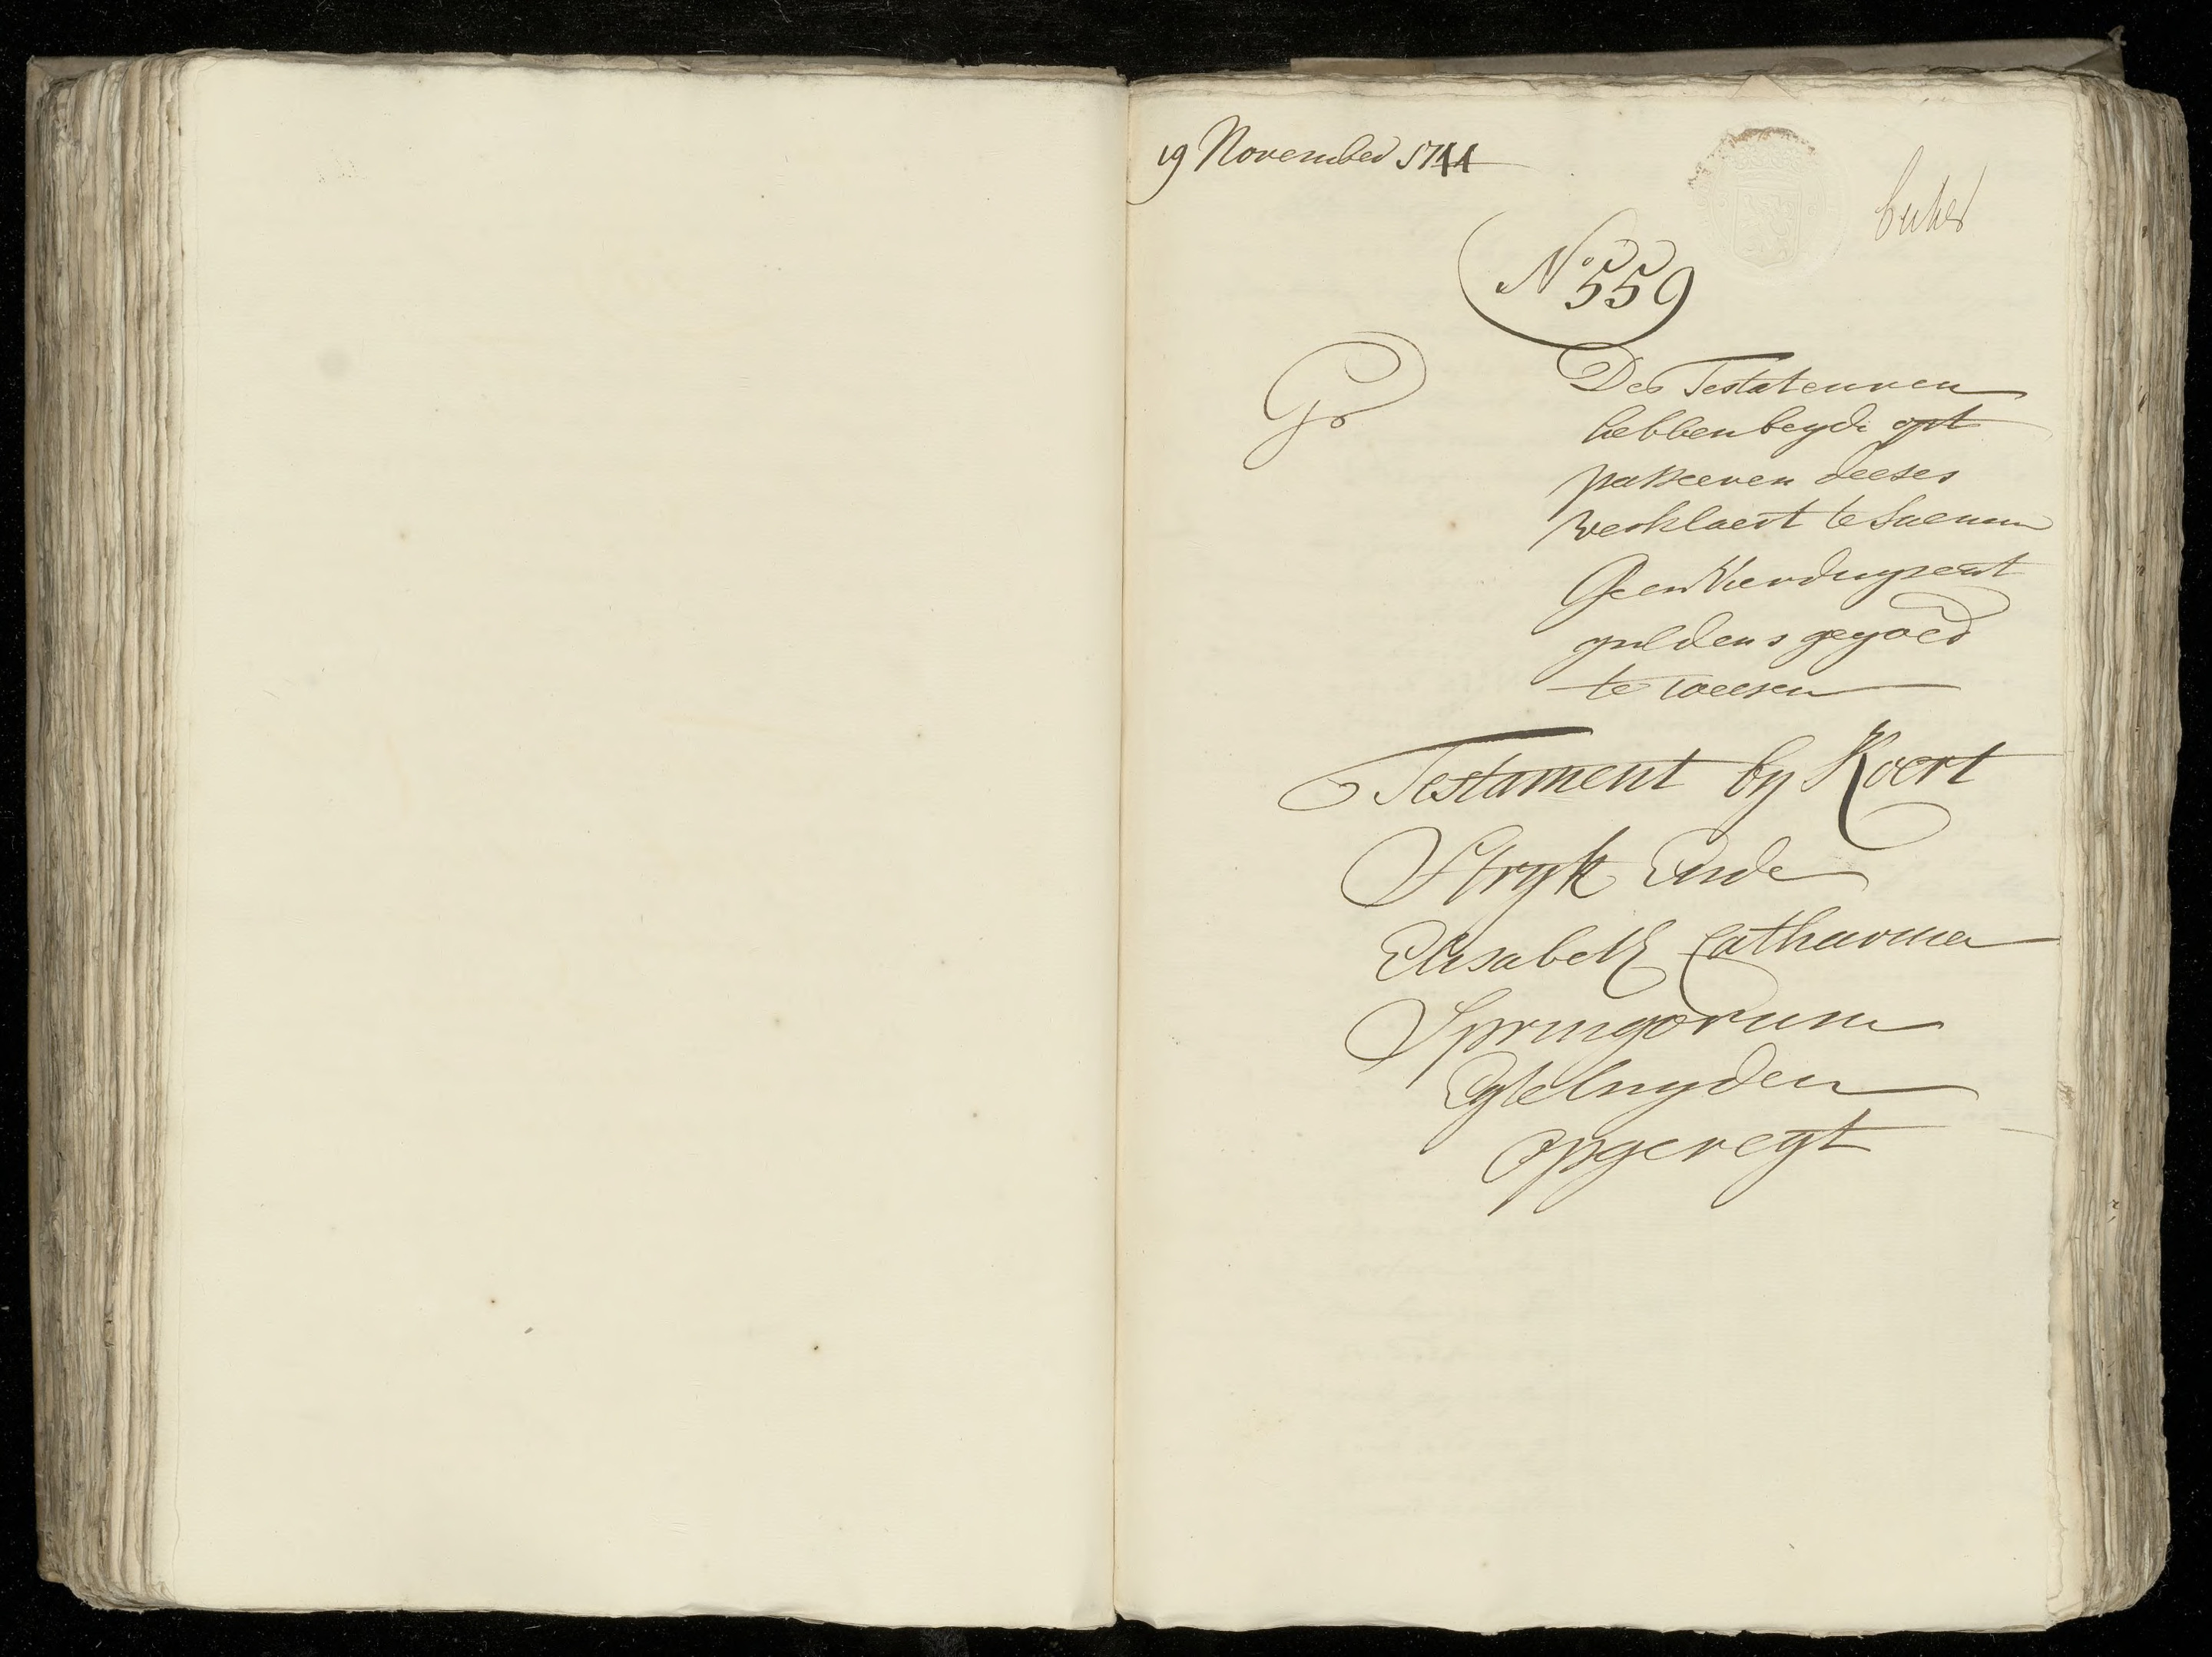 19 November 1744
No. 559
Gr
Des Testateuren
hebben beyde opt
passeeren deeses
verklaert te saemen
Geen Vierduysent
guldens gegoed
te weesen
Testament by Koert
Stryk Ende
Elisabeth Catharina
Springorum
Egteluyden
opgeregt